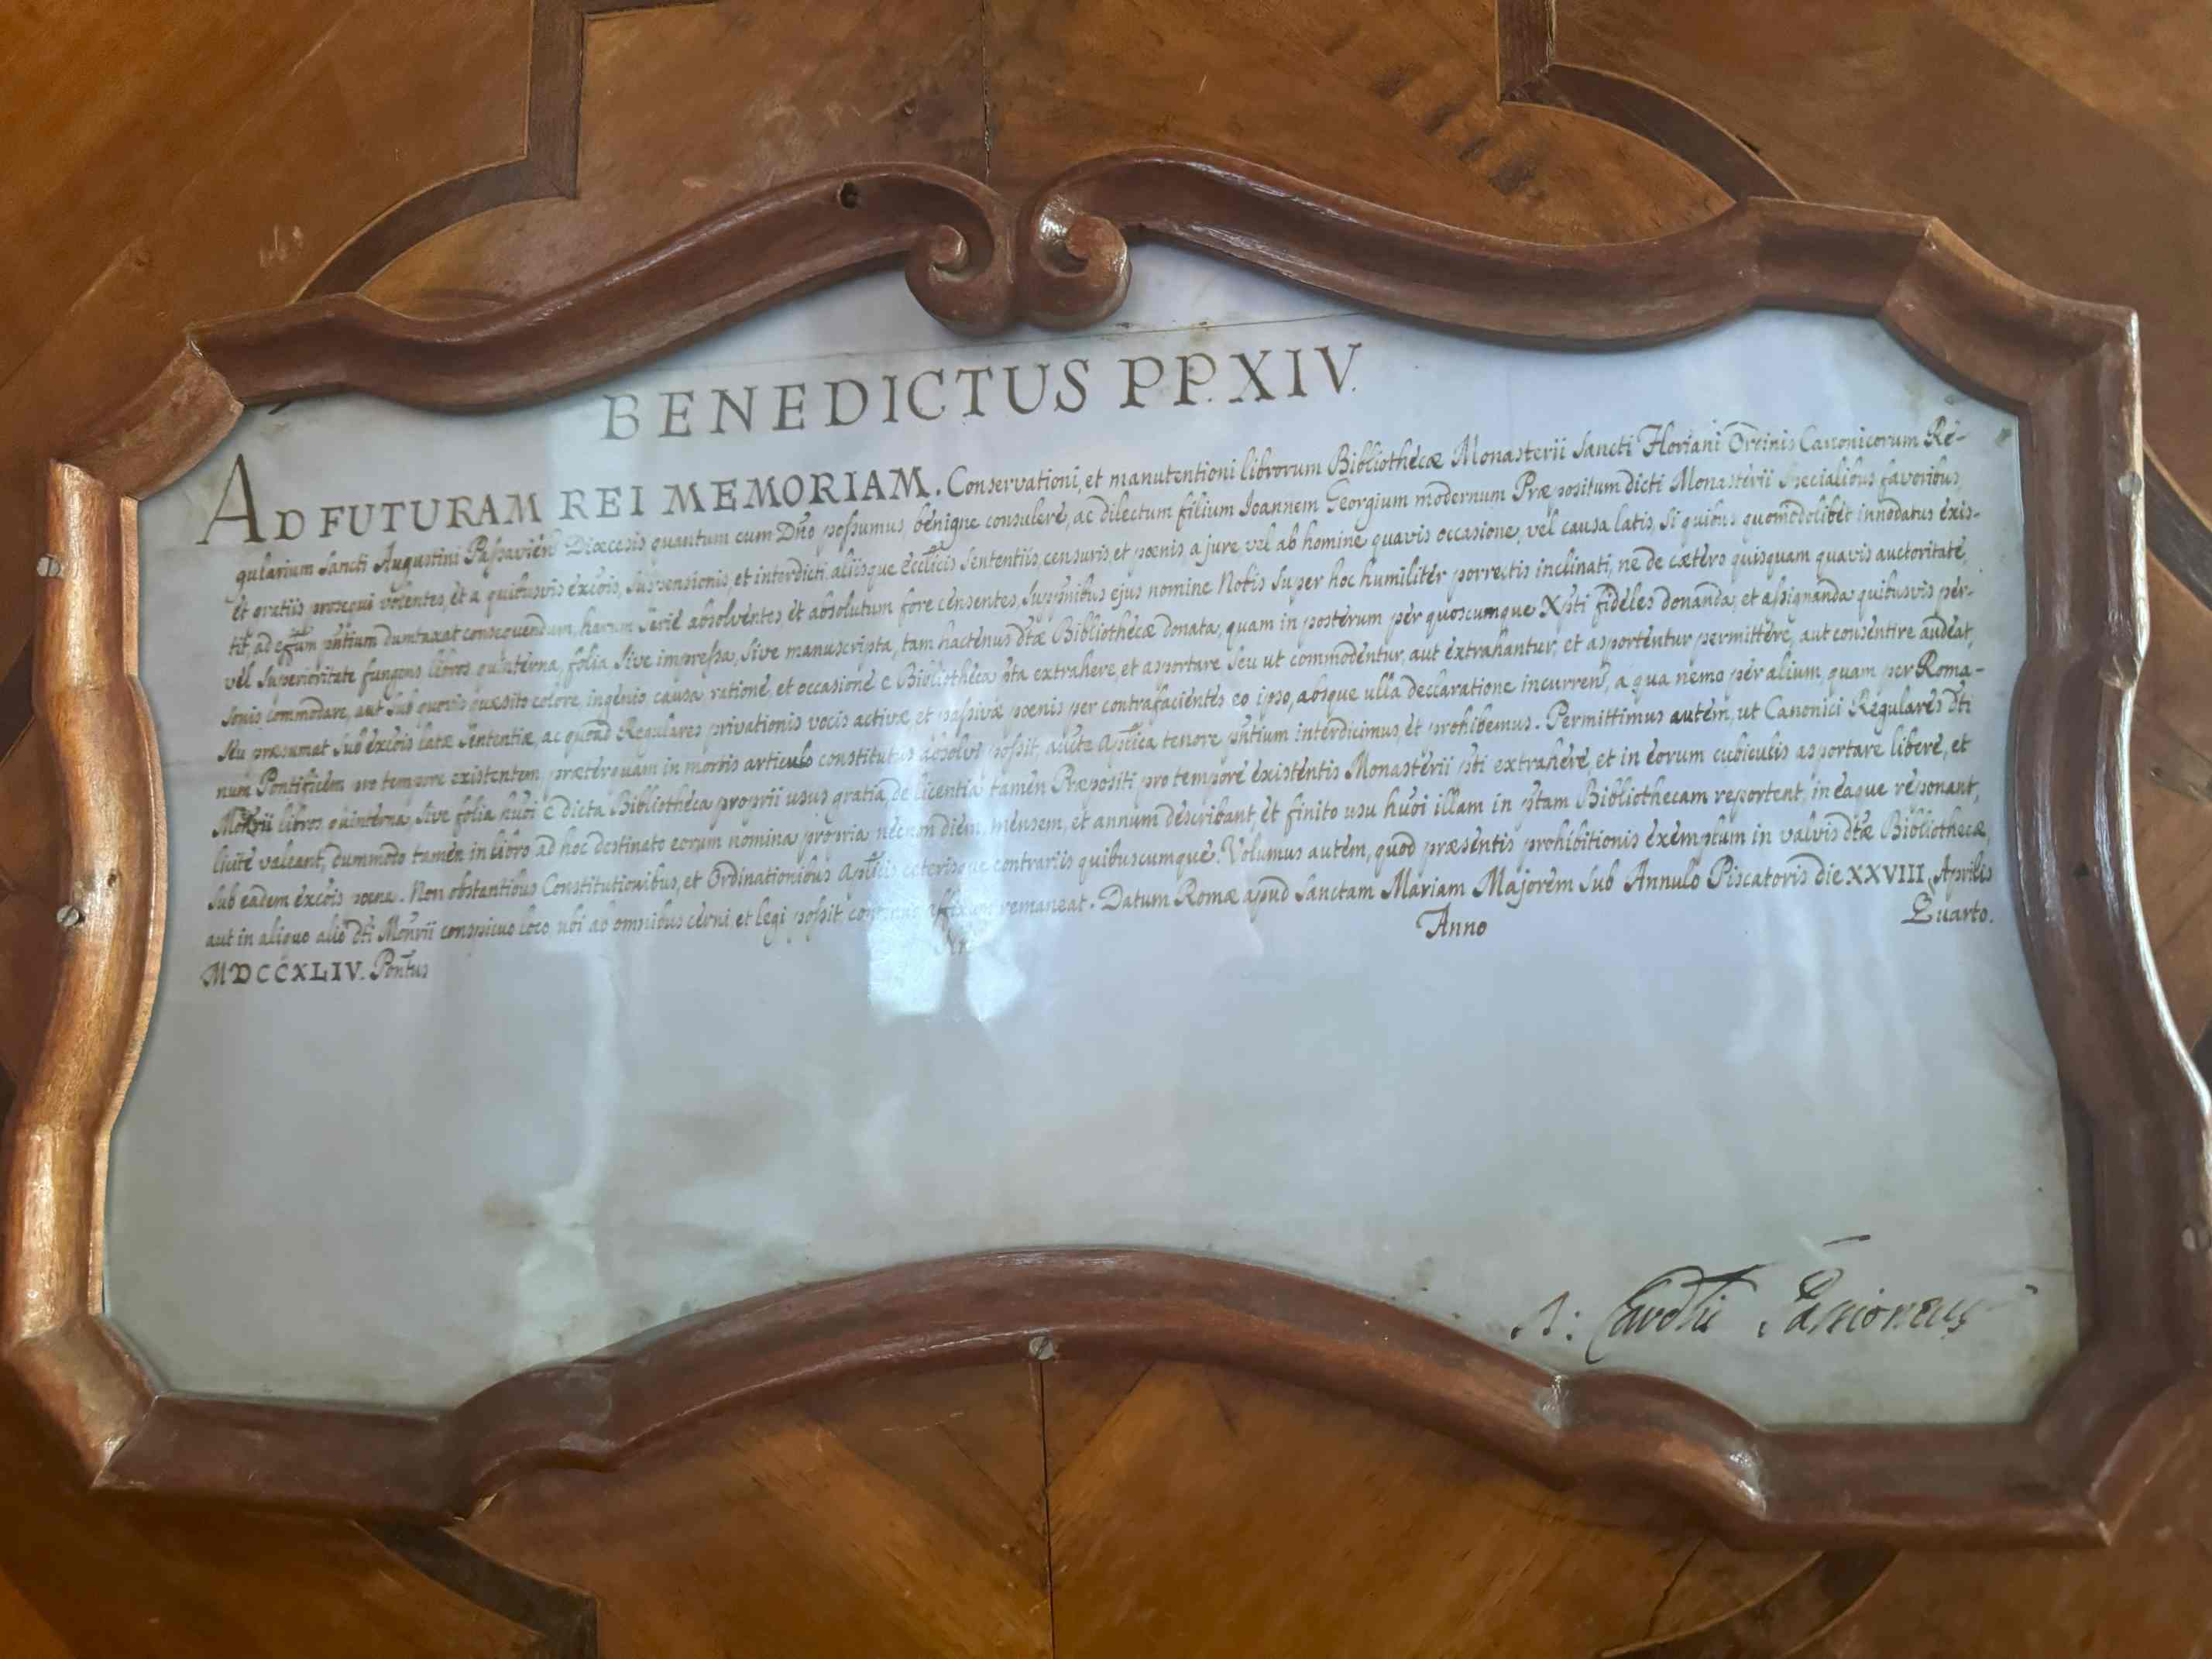 BENEDICTUS PP. XIV.
AD FUTURAM REI MEMORIAM. Conservationi, et manutentioni librorum Bibliothecæ Monasterii Sancti Floriani Ordinis Canonicorum Re-
gularium Sancti Augustini Passavien Diœcesis quantum cum Dño possumus benigne consulere, ac dilectum filium Ioannem Georgium modernum Præpositum dicti Monasterii specialibus favoribus,
et gratiis prosequi volentes, et a quibusvis excõis, suspensionis, et interdicti, aliisque Eccliicis sententiis, censuris, et pœnis a jure vel ab homine quavis occasione, vel causa latis, si quibus quomodolibet innodatus exis-
tit, ad effum pñtium dumtaxat consequendum, harum serie absolventes et absolutum fore censentes, supnibus ejus nomine Nobis super hoc humiliter porrectis inclinati, ne de cætero quisquam quavis auctoritate,
vel superioritate fungens libros quinterna, folia sive impressa, sive manuscripta, tam hactenus dtæ Bibliothecæ donata, quam in posterum per quoscumque Xpsti fideles donanda, et assignanda quibusvis per-
sonis commodare, aut sub quovis quæsito colore, ingenio causa, ratione, et occasione e Bibliotheca pta extrahere, et asportare seu ut commodentur, aut extrahantur, et asportentur permittere, aut consentire audeat,
seu præsumat sub excõis latæ sententiæ, ac quoad Regulares privationis vocis activæ, et passivæ pœnis per contrafacientes eo ipso, absque ulla declaratione incurren, a qua nemo per alium, quam per Roma-
num Pontificem pro tempore existentem, præterquam in mortis articulo constitutus absolvi possit, aucte Aplica tenore pñtium interdicimus, et prohibemus. Permittimus autem, ut Canonici Regulares dti
Monrii libros quinterna, sive folia huõi e dicta Bibliotheca proprii usus gratia, de licentia tamen Præpositi pro tempore existentis Monasterii pti extrahere, et in eorum cubiculis asportare libere, et
licite valeant, dummodo tamen in libro ad hoc destinato eorum nomina propria necnon diem, mensem, et annum describant, et finito usu huõi illam in ptam Bibliothecam reportent, in eaque reponant,
sub eadem excõis pœna. Non obstantibus Constitutionibus, et Ordinationibus Aplicis ceterisque contrariis quibuscumque. Volumus autem, quod præsentis prohibitionis exemplum in valvis dtæ Bibliothecæ,
aut in aliquo alio dti Monrii conspicuo loco ubi ab omnibus cerni et legi possit affixum remaneat. Datum Romæ apud Sanctam Mariam Majorem sub Annulo Piscatoris die XXVIII Aprilis
MDCCXLIV. Pontus Nri Anno Quarto.